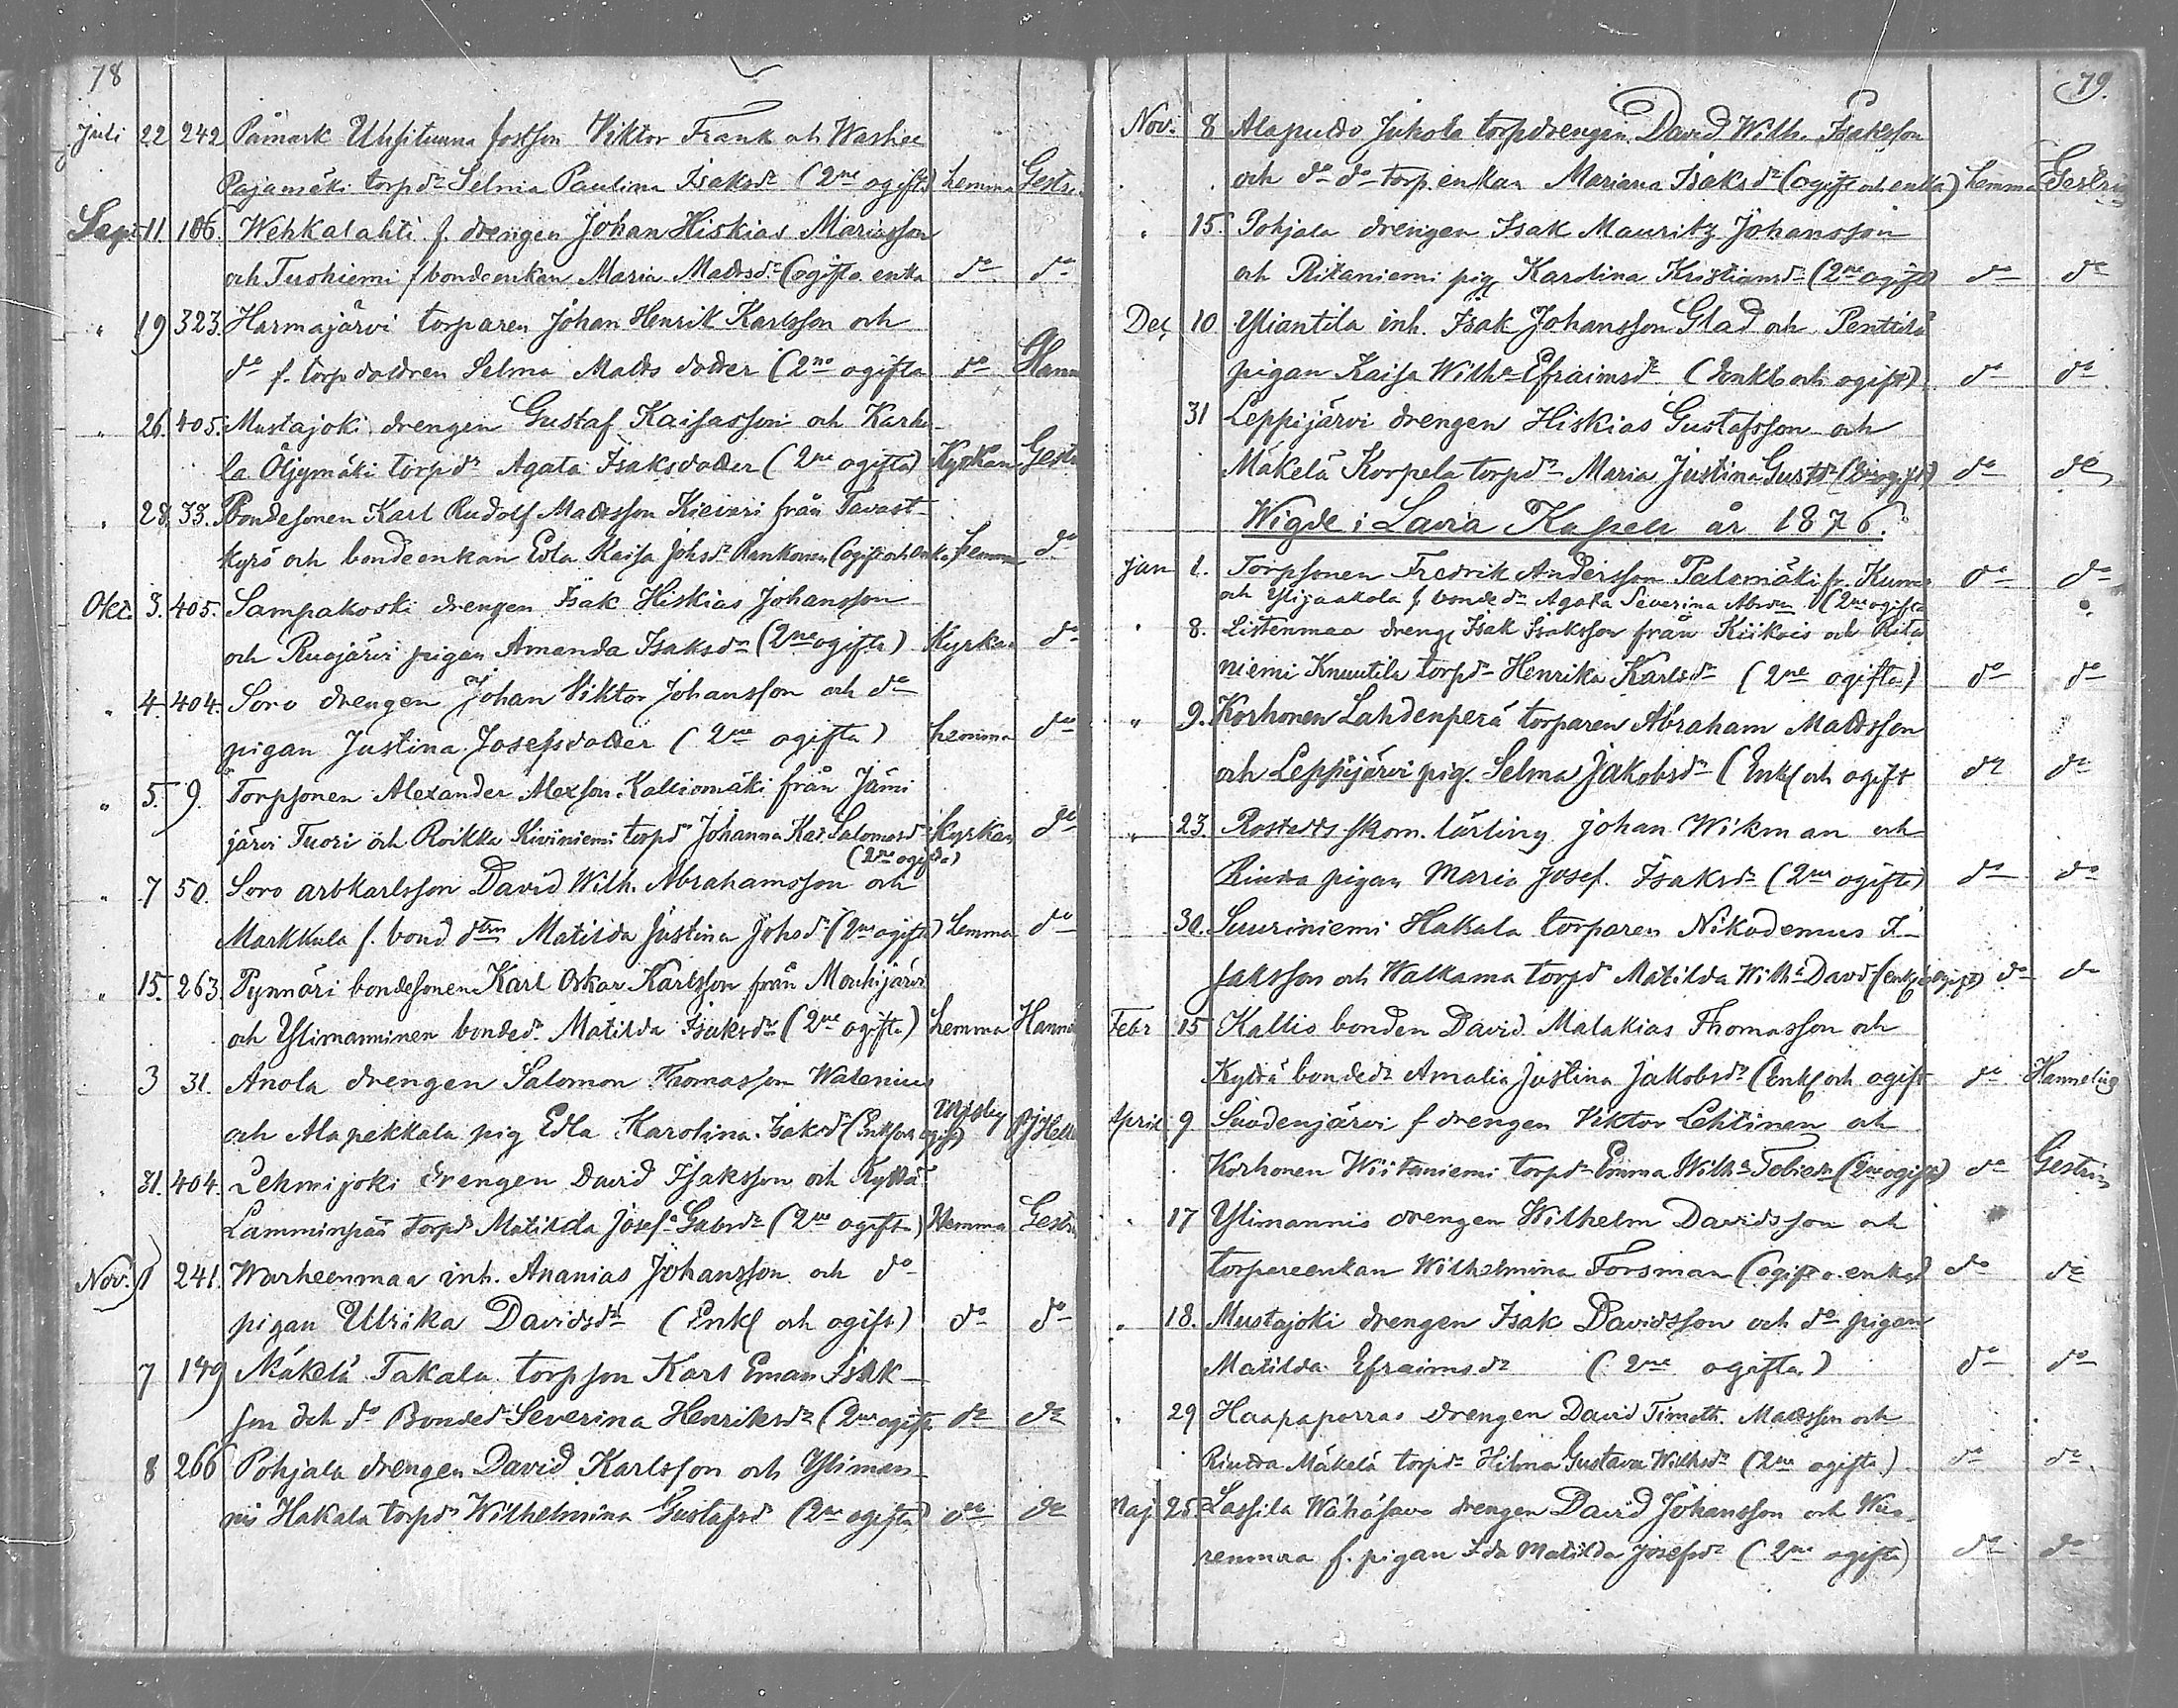 78
Juli 22 242 Påmark Uusituuna fostson Viktor Frank och
Pajamäki torpdr Selma Paulina Isaksdr (2ne ogifta) hemma Gestr.
Sept 11. 106. Wehkalahti f. drengen Johan Hiskias Mariasson
och f bondeenkan Maria Mattsdr (ogift o. enka do do
" 19 323. Harmajärvi torparen Johan Henrik Karlsson och
do f. torpdottren Selma Matts dotter (2ne ogifta do Hann
" 26. 405. Mustajoki drengen Gustaf Kaisasson och Karhu-
la Öljymäki torpdr Agata Isaksdotter (2ne ogifta) Kyrkan Gestr
" 28. 33. Bondesonen Karl Rudolf Mattsson från Tavast-
kyrö och bondeenkan Eva Kaisa Johsdr Rankonen (ogift och enka hemma do
Okt. 3. 405. Sampakoski drengen Isak Hiskias Johansson
och Ruojärvi pigan Amanda Isaksdr (2ne ogifta) Kyrkan do
" 4. 404. Soro drengen Johan Viktor Johansson och do
pigan Justina Josefsdotter (2ne ogifta) hemma do
" 5. 9. Torpsonen Alexander Alexson Kalliomäki från Jämi
järvi Tuori och Roikka Kiviniemi torpdr Johanna Kar. Salomosdr Kyrkan do
(2ne ogifta)
" 7 50. Soro arbkarlsson David Wilh. Abrahamsson och
Markkula f. bond dtrn Matilda Justina Johsdr (2ne ogifta) hemma do
" 15. 263. Pynnäri bondesonen Karl Oskar Karlsson från Mouhijärvi
och Ylimanninen bondedr Matilda Isaksdr (2ne ogifta) hemma Hanne
3 31. Anola drengen Salomon Thomasson Walenius
och Alapekkala pig Edla Karolina Isaksdr (Enkl och ogift)
" 31. 404. Lehmijoki drengen David Isaksson och Kyttä
Lamminpää torpdr Matilda Josefa Gabrdr (2ne ogifta) Hemma Gestr
Nov. 1 241. Warheenmaa inh. Ananias Johansson och do
pigan Ulrika Davidsdr (Enkl och ogift) do do
7 149 Mäkelä Takala torpson Karl Eman Isak-
son och do Bondedr Severina Henriksdr (2ne ogifta do do
8 266 Pohjala drengen David Karlsson och Yliman-
nis Hakala torpdr Wilhelmina Gustafsdr (2ne ogifta) do do
79.
Nov. 8 Alaputto Juhola torpdrengen David Wilh. Isaksson
och do do torp.enkan Mariana Isaksdr (ogift och enka) hemma Gestrin
" 15. Pohjala drengen Isak Mauritz Johansson
och Ritaniemi pig Karolina Kristiansdr (2ne ogifta do do
Dec 10 Yliantila inh. Isak Johansson Glad och Penttilä
pigan Kaisa Wilhа Efraimsdr (Enkl och ogift) do do
31 Leppijärvi drengen Hiskias Gustafsson och
Mäkelä Korpela torpdr Maria Justina Gustdr (2ne ogift) do do
Wigde i Lavia Kapell år 1876.
Jan 1. Torpsonen Fredrik Andersson Palomäki fr. Kumo do do
och Ylijaakola f. bondedr Agata Severina (2ne ogifta
" 8. Listenmaa dreng Isak Isaksson från Kiikois och Rita
niemi Knuutila torpdr Henrika Karlsdr (2ne ogifta) do do
" 9. Korhonen Lahdenperä torparen Abraham Mattsson
och Leppijärvi pig. Selma Jakobsdr (Enkl och ogift do do
" 23. Rostedts skom. lärling Johan Wikman och
Rinda pigan Maria Josef. Isaksdr (2ne ogifta) do do
30. Suuriniemi Hakala torparen Nikodemus I-
saksson och Walkama torpdr Matilda Wilha Davdr (enkl och ogift) do do
Febr 15 Kallio bonden David Malakias Thomasson och
Kyttä bondedr Amalia Justina Jakobsdr (Enkl och ogift do Hannelius
April 9 Suodenjärvi f drengen Viktor Lehtinen och
Korhonen Wiitaniemi torpdr Emma Wilha Tobiedr (2ne ogifta) do Gestrin
" 17 Ylimannis drengen Wilhelm Davidsson och
torpareenkan Wilhelmina Forsman (ogift o. enka) do do
" 18. Mustajoki drengen Isak Davidsson och do pigan
Matilda Efraimsdr (2ne ogifta) do do
" 29 Haapaporras drengen David Timoth. Mattsson och
Rinda Mäkelä torpdr Hilma Gustava Wilhsdr (2ne ogifta) do do
Maj 25. Lassila Wähäsavo drengen David Johansson och
renmaa f. pigan Ida Matilda Josefsdr (2ne ogifta) do do